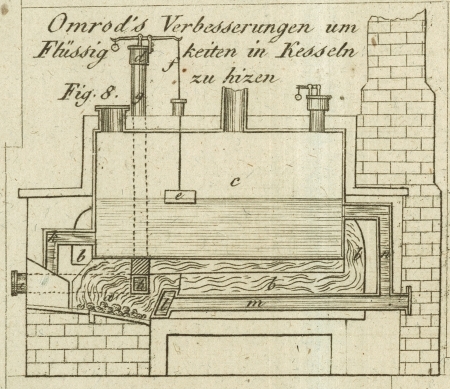 Omrod's Verbesserungen um
Flüssig keiten in Kesseln
zu hizen
Fig. 8.
d
f
g
c
e
h
b
b
n
a
b
m